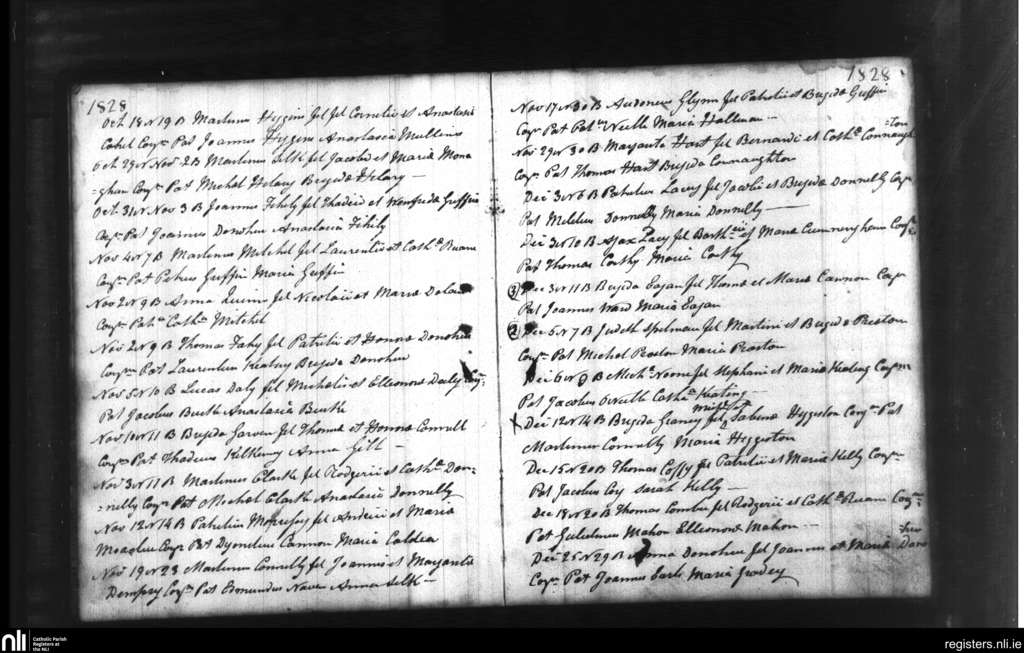 1828
Oct 18 N 19 B Martinus Higgins fil Cornelii et Anastasia
Cahil Conj Pat Joannes Higgins Anastasia Mullins
Oct 29 N Nov 2 B Martinus Silk fil Jacobi et Maria Mona
=ghan Conj Pat Michel Helary Brigida Helary
Oct 31 N Nov 3 B Joannes Fihily fil Thadeii et Winefreda Griffin
Conj Pat Joannes Donohue Anastasia Fihily
Nov 4 N 7 B Martinus Mitchel fil Laurentii et Cath Ruane
Conj Pat Petrus Griffin Maria Griffin
Nov 2 N 9 B Anna Quinn fil Nicolaii et Maria Dolan
Conj Cath Mitchel
Nov 2 N 9 B Thomas Fahy fil Patritii et Honora Donohue
Conj Pat Laurentius Brigida Donohue
Nov 5 N 10 B Lucas Daly fil Michaelis et Elleonora Daly Conj
Pat Jacobus Burke Anastasia Burke
Nov 10 N 11 B Brigida fil Thoma et Honora Connell
Conj Pat Thadeus Kilkenny Anna Silk
Nov 3 N 11 B Martinus Clarke fil Rodgerii et Cath Don=
=nelly Conj Pat Michel Clark Anastasia Donnelly
Nov 12 N 14 B Patritius fil Andrii et Maria
Meagher Conj Pat Dyonisius Cannon Maria
Nov 19 N 23 Martinus Connelly fil Joannis et Margarita
Dempsy Conj Pat Edmundus Anna Silk
1828
Nov 17 N 30 B Audoneus Glynn fil Patritii et Brigida Griffin
Conj Pat Neille Maria Hallinan
Nov 29 N 30 B Margarita Hart fil Bernardi et Cath Connaugh
=ton
Conj Pat Thomas Hart Brigida Connaughton
Dec 3 N 6 B Patritius Lacey fil Jacobi et Brigida Donnelly Conj
Pat Donnelly Maria Donnelly
Dec 3 N 10 B Lacy fil Barth et Maria Cunnengham Conj
Pat Thomas Corthy Maria Corthy
(3) Dec 3 N 11 B Brigida Eagan fil Thoma et Maria Cannon Conj
Pat Joannes Ward Maria Eagan
(2) Dec 5 N 7 B Judith Spelman fil Martini et Brigida Preston
Conj Pat Michel Preston Maria Preston
Dec 6 N 8 B Mich Noone fil Stephani et Maria Keating Conj
Pat Jacobus Neille Cath Keating
X Dec 12 N 14 B Brigida Graney fil Sabina Higgeston Conj Pat
Martinus Connelly Maria Heggeston
Dec 15 N 20 B Thomas Coffy fil Patritii et Maria Kelly Conj
Pat Jacobus Coy Sarah Kelly
Dec 18 N 20 B Thomas fil Rodgerii et Cath Ruane Conj
Pat Gulielmus Mahon Elleonora Mahon
Dec 25 N 29 B Anna Donohue fil Joannis et Maria Dono
=hue
Conj Pat Joannes Earls Maria Gradey
nli
Catholic Parish
Registers at
the NLI
registers.nli.ie